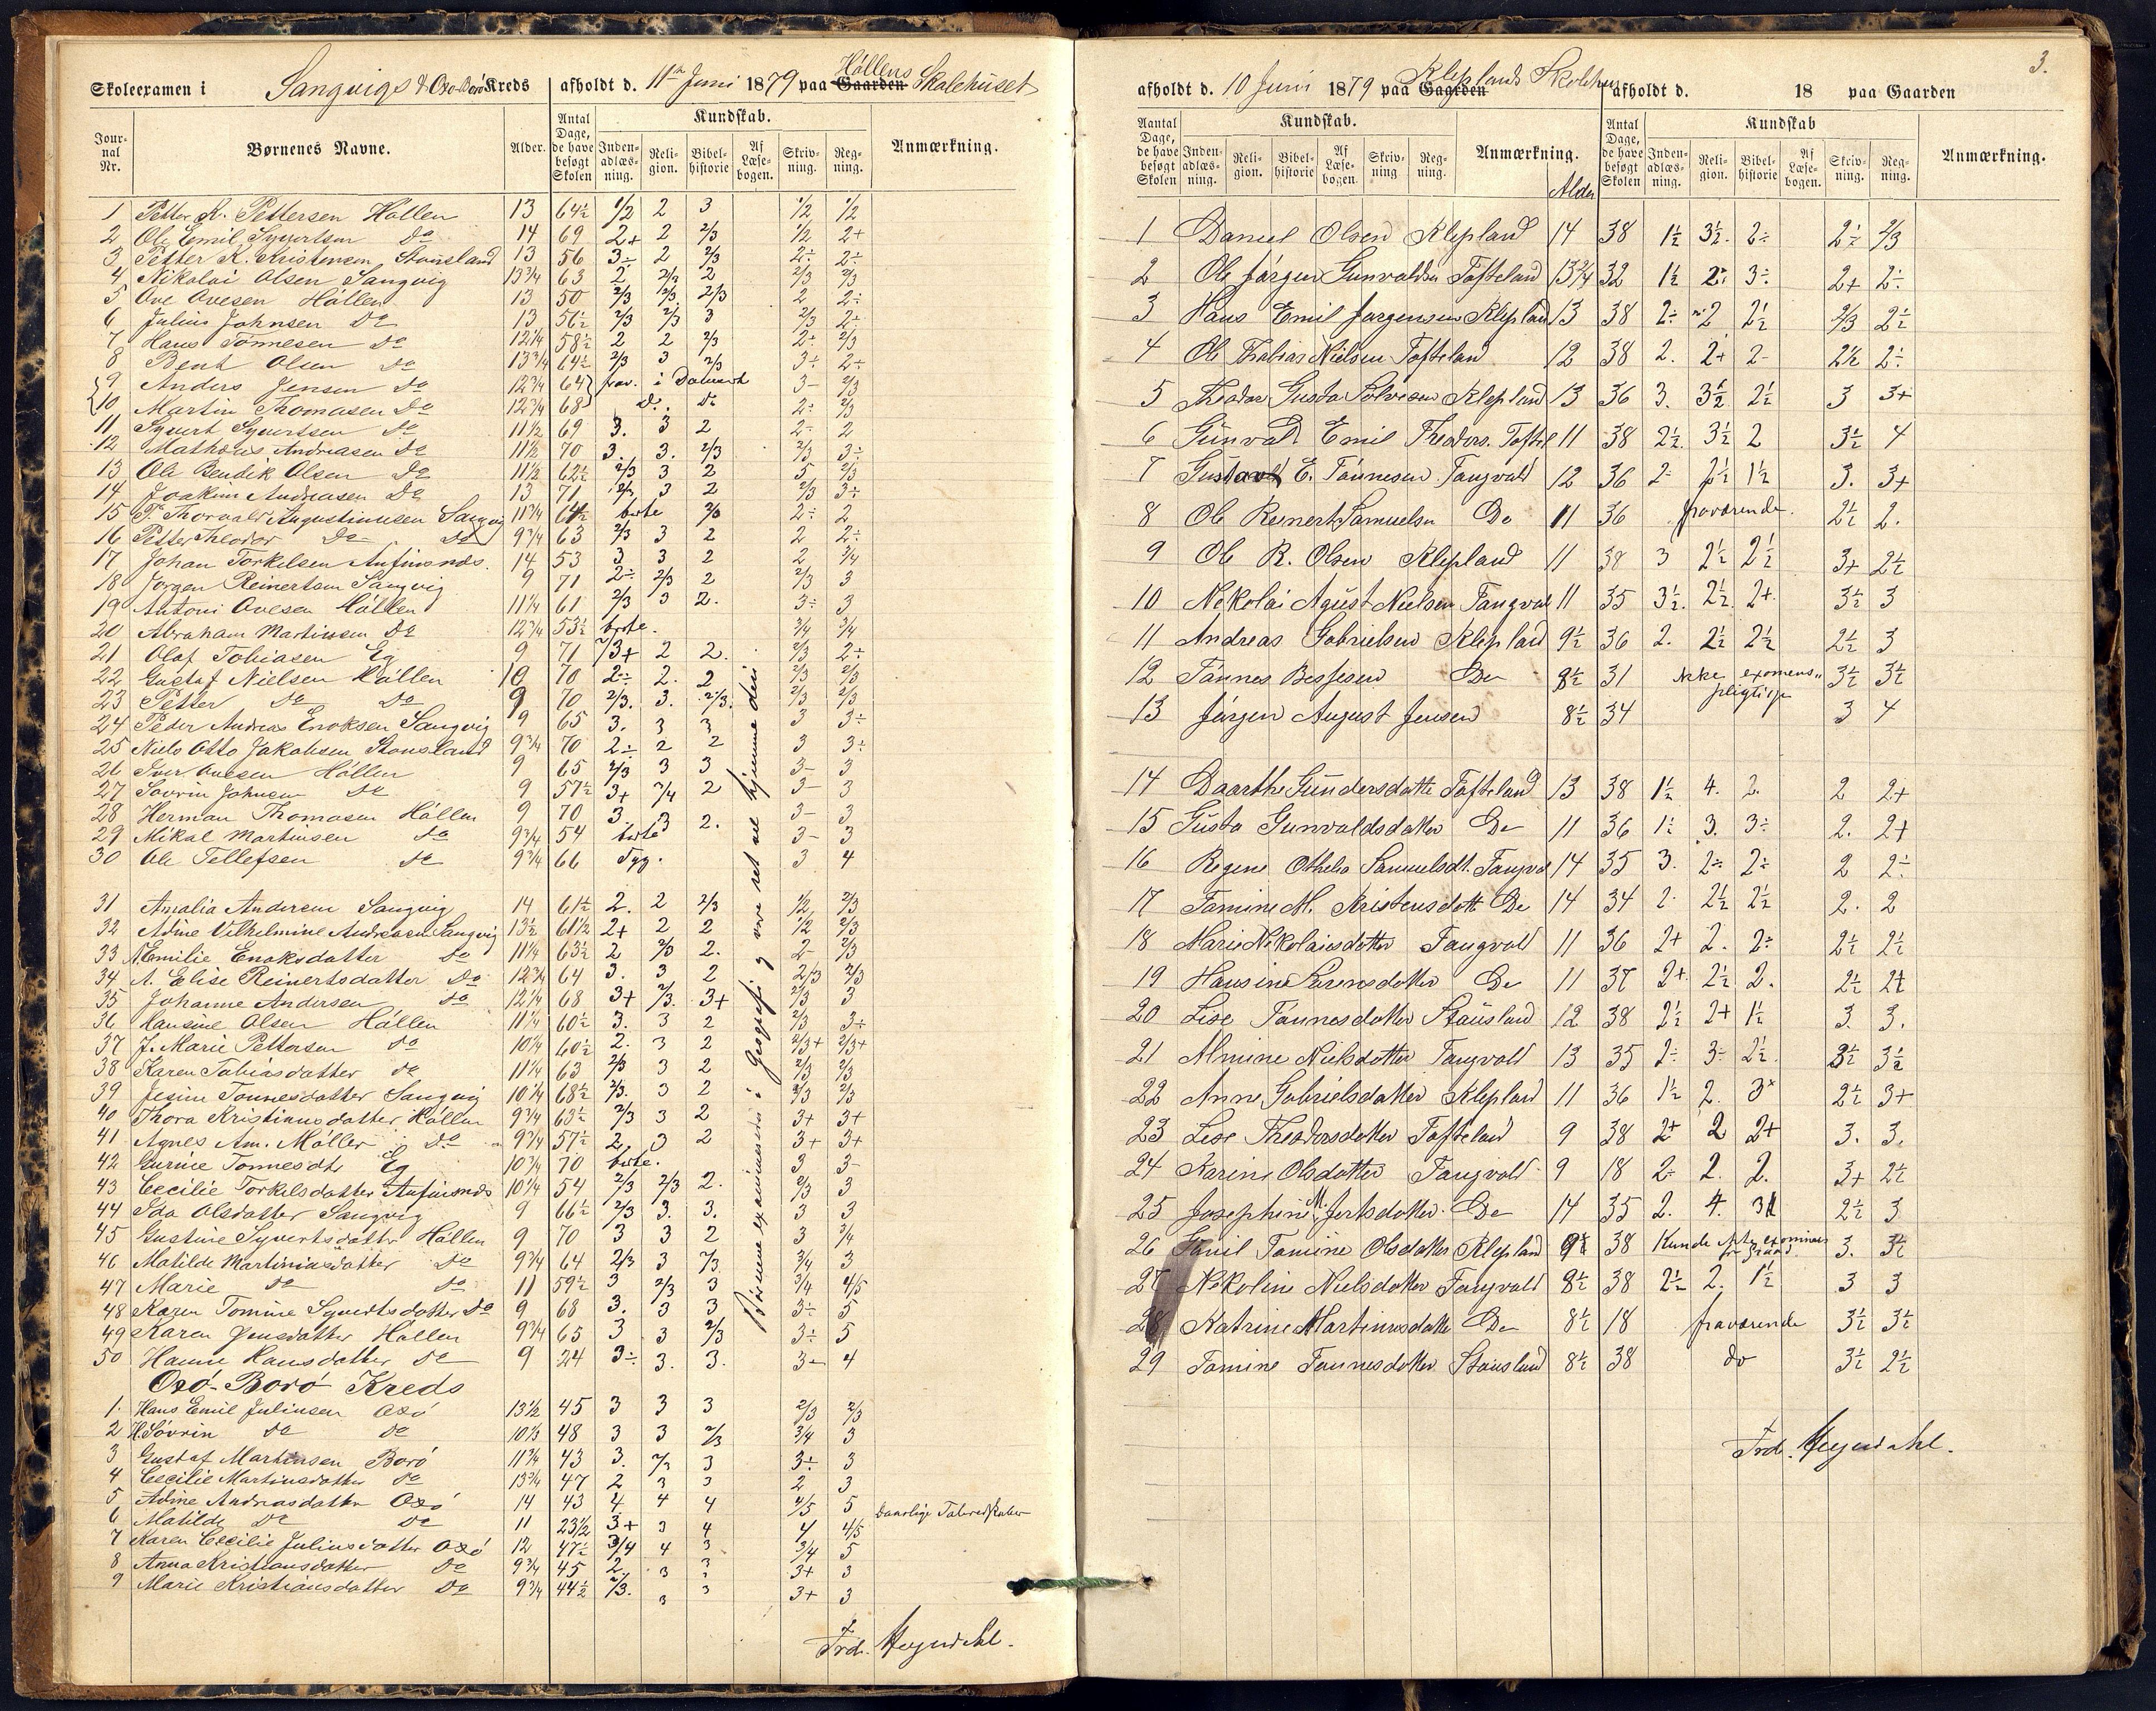 Skoleexamen i Sangvigs & Oxö-Borö Kreds afholdt d. 11te Juni 1879 paa Gaarden Höllens Skolehuset
Jour-nal Nr. Børnenes Navne. Alder. Antal Dage, de have besøgt Skolen Kundskab. Inden-adlæs-ning. Reli-gion. Bibel-historie Af Læse-bogen. Skriv-ning. Reg-ning. Anmærkning.
1 Petter K. Pettersen Höllen 13 64½ 1/2 2 3 1/2 1/2
2 Ole Emil Syvertsen do 14 69 2+ 2 2/3 1/2 2+
3 Petter K. Kristensen Stausland 13 56 3÷ 2 2/3 2÷ 2÷
4 Nikolai Olsen Sangvig 13¾ 63 2 2/3 2 2/3 2/3
5 Ove Ovesen Höllen 13 50 2/3 2/3 2/3 2 2÷
6 Julius Johnsen do 13 56½ 2/3 2/3 3 2/3 2÷
7 Hans Tönnesen do 12¼ 58½ 2 2 2/3 2÷ 2/3
8 Bent Olsen do 13¾ 64½ 2/3 3 2/3 3÷ 2÷
9 Anders Jensen do 12¾ 64 frav. i 3- 2/3
10 Martin Thomasen do 12¾ 68 do do 2÷ 2/3
11 Syvert Syvertsen do 11½ 69 3. 3 2 2÷ 2
12 Mathæus Andreasen do 11½ 70 3. 3. 2/3 2/3 3÷
13 Ole Bendik Olsen do 11½ 62½ 2/3 3 2 5 2/3
14 Joakim Andreasen do 13 71 2/3 3 2 2/3 3÷
15 P. Thorvald Augustinusen Sangvig 11¾ 64½ borte 2÷ 2
16 Petter Theodor do do 9¾ 63 2/3 3 2 2 2÷
17 Johan Torkelsen Anfinsnds. 14 53 3 3 2 2 3/4
18 Jörgen Reinertsen Sangvig 9 71 2÷ 2/3 2 2/3 3
19 Antoni Ovesen Höllen 11¼ 61 2/3 3 2. 3÷ 3
20 Abraham Martinsen do 12¾ 53½ borte. 3/4 3/4
21 Olaf Tobiasen Eg 9 71 2/3+ 2 2. 2/3 2÷
22 Gustaf Nielsen Höllen 10 70 2÷ 2. 2 2/3 2/3
23 Petter do do 9 70 2/3. 3. 2/3. 2/3 2/3
24 Peder Andreas Enoksen Sangvig 9 65 3. 3 3 3 3÷
25 Niels Otto Jakobsen Stausland 9¾ 70 2÷ 2 2 3 3÷
26 Iver Ovesen Höllen 9 65 2/3 3 3 3- 3
27 Sövrin Johnsen do 9 57½ 3+ 3/4 2 3- 3
28 Herman Thomasen Höllen 9 70 3. 3 2. 3- 3
29 Mikal Martinsen do 9¾ 54 borte 3- 3
30 Ole Tellefsen do 9¾ 66 syg. 3 4
31 Amalia Andersen Sangvig 14 61½ 2. 2 2/3 1/2 2/3
32 Adine Vilhelmine Andreasen Sangvig 13½ 61½ 2+ 2 2 1/2 2/3
33 N. Emilie Enoksdatter do 11¼ 63½ 2 2/3 2. 2- 2/3
34 A. Elise Reinertsdatter do 12¾ 64 3. 3 2 2/3 2/3
35 Johanne Andersen do 12¼ 68 3+ 2/3. 3+ 2/3 3
36 Hansine Olsen Höllen 11¼ 60½ 3. 3 2 2/3 3÷
37 J. Marie Pettersen do 10¼ 60½ 2. 3 2 2/3+ 2/3+
38 Karen Tobiasdatter do 11¼ 63 2/3 3 2 2/3 2/3
39 Jesine Tönnesdatter Sangvig 10¼ 68½ 2/3. 3 2 2/3 2/3
40 Thora Kristiansdatter Höllen 9¾ 63½ 2/3 3 2 3+ 3+
41 Agnes Am. Möller do 9¾ 57½ 2. 3 2 3+ 3+
42 Gurine Tonnesdtr Eg 10¾ 70 borte. 3 3-
43 Cecilie Torkelsdatter Anfinsnds 10¼ 54 2/3 2/3 2. 2/3 3
44 Ida Olsdatter Sangvig 9 66½ 2/3 3. 3. 3 3
45 Gustine Syvertsdatter Höllen 9 70 3 3 2 3 3/4
46 Matilde Martiniusdatter do 9¾ 64 2/3 3 2/3 3/4 3
47 Marie do do 11 59½ 3 2/3 3 3/4 4/5
48 Karen Tomine Syvertsdatter do 9 68 3. 3 3 3÷ 5
49 Karen Jensdatter Höllen 9¾ 65 3 3 2/3 3÷ 5
50 Hanne Hansdatter do 9 24 3÷ 3. 3. 3- 4
Börnene examineredes i Geografi g vare ret vel hjemme deri
Oxö-Borö Kreds
1. Hans Emil Juliusen Oxö 13½ 45 3 3 3 2/3 2/3
2 H. Sövrin do do 10⅓ 48 3 3 2/3 3/4 3
3 Gustaf Martinsen Borö 11¾ 43 3. 2/3 3 3÷ 3
4 Cecilie Martinsdatter do 13¾ 47 2 3 3 2 3
5 Adine Andreasdatter Oxö 14 43 4 4 4 4/5 5
6 Matilde do do 11 23½ 3+ 3 4 4 4/5
7 Karen Cecilie Juliusdatter Oxö 12 47½ 3/4 4 3 3/4 5
8 Anna Kristiansdatter do 9¾ 45 2. 3 3 3+ 3
9 Marie Kristiansdatter do 9¾ 44½ 2/3. 3 3 3+ 3
Frd. Meyerdahl.
3.
afholdt d. 10 Juni 1879 paa Gaarden Kleplands Skolehus afholdt d. 18 paa Gaarden
Aantal Dage, de have besøgt Skolen Kundskab. Inden-adlæs-ning. Reli-gion. Bibel-historie Af Læse-bogen. Skriv-ning Reg-ning. Anmærkning. Alder Antal Dage, de have besøgt Skolen Kundskab Inden-adlæs-ning. Reli-gion. Bibel-historie Af Læse-bogen. Skriv-ning. Reg-ning. Anmærkning.
1 Daniel Olsen Klepland 14 38 1½ 3½. 2÷ 2½ 2/3
2 Ole Jörgen Gunvaldsen Tofteland 13¾ 32 1½ 2÷ 3÷ 2+ 2÷
3 Hans Emil Jörgensen Klepland 13 38 2÷ 2 2½ 2/3 2½
4 Ole Tobias Nielsen Tofteland 12 38 2. 2+ 2- 2½ 2÷
5 Theodor Gusta Solvesen Klepland 13 36 3. 3½ 2½ 3 3+
6 Gunvald Emil Theodors. Toftel 11 38 2½. 3½ 2 3½ 4
7 Gustav E. Tönnesen Tangvald 12 36 2- 2½ 1½ 3. 3+
8 Ole Reinert Samuelsen Do 11 36 fraværende. 2½ 2.
9 Ole R. Olsen Klepland 11 38 3 2½ 2½ 3+ 2½
10 Nikolai Agust Nielsen Tangval 11 35 3½. 2½. 2+. 3½ 3
11 Andreas Gabrielsen Klepland 9½ 36 2. 2½ 2½ 2½ 3
12 Tönnes Do 8½ 31 ikke examens- 3½ 3½
pligtige
13 Jörgen August Jensen 8½ 34 3 4
14 Daarthe Gundersdatter Tofteland 13 38 1½ 4. 2. 2 2+
15 Gusta Gunvaldsdatter Do 11 36 1÷ 3. 3÷ 2. 2+
16 Regine Othelia Samuelsdt. Tangva 14 35 3. 2÷ 2÷ 2 2÷
17 Tomine M. Kristensdott Do 14 34 2. 2½ 2½ 2. 2
18 Marie Nikolaisdatter Tangvald 11 36 2+ 2. 2÷ 2½ 2½
19 Hansine Sörensdatter Do 11 37 2+. 2½ 2. 2½ 2+
20 Lise Tönnesdatter Stausland 12 38 2½ 2+ 1½ 3. 3.
21 Almine Nielsdatter Tangvald 13 35 2÷ 3÷ 2½ 3½ 3½
22 Anne Gabrielsdatter Klepland 11 36 1½ 2. 3+ 2½ 3+
23 Lise Theodorsdatter Tofteland 9 38 2+ 2 2+ 3. 3.
24 Karine Olsdatter Tangvald 9 18 2÷ 2. 2. 3+ 2½
25 Josephine M. Do 14 35 2. 4. 3 2½ 3
26 Tomine Olsdatter Klepland 9½ 38 Kunde ikke examineres 3. 3½
for Graad
27 Nikoline Nielsdatter Tangvald 8½ 38 2½ 2. 1½ 3 3
28 Katrine Martinusdatter Do 8½ 18 fraværende 3½ 3½
29 Tomine Tönnesdatter Stausland 8½ 38 do 3½ 2½
Frd. Meyerdahl.